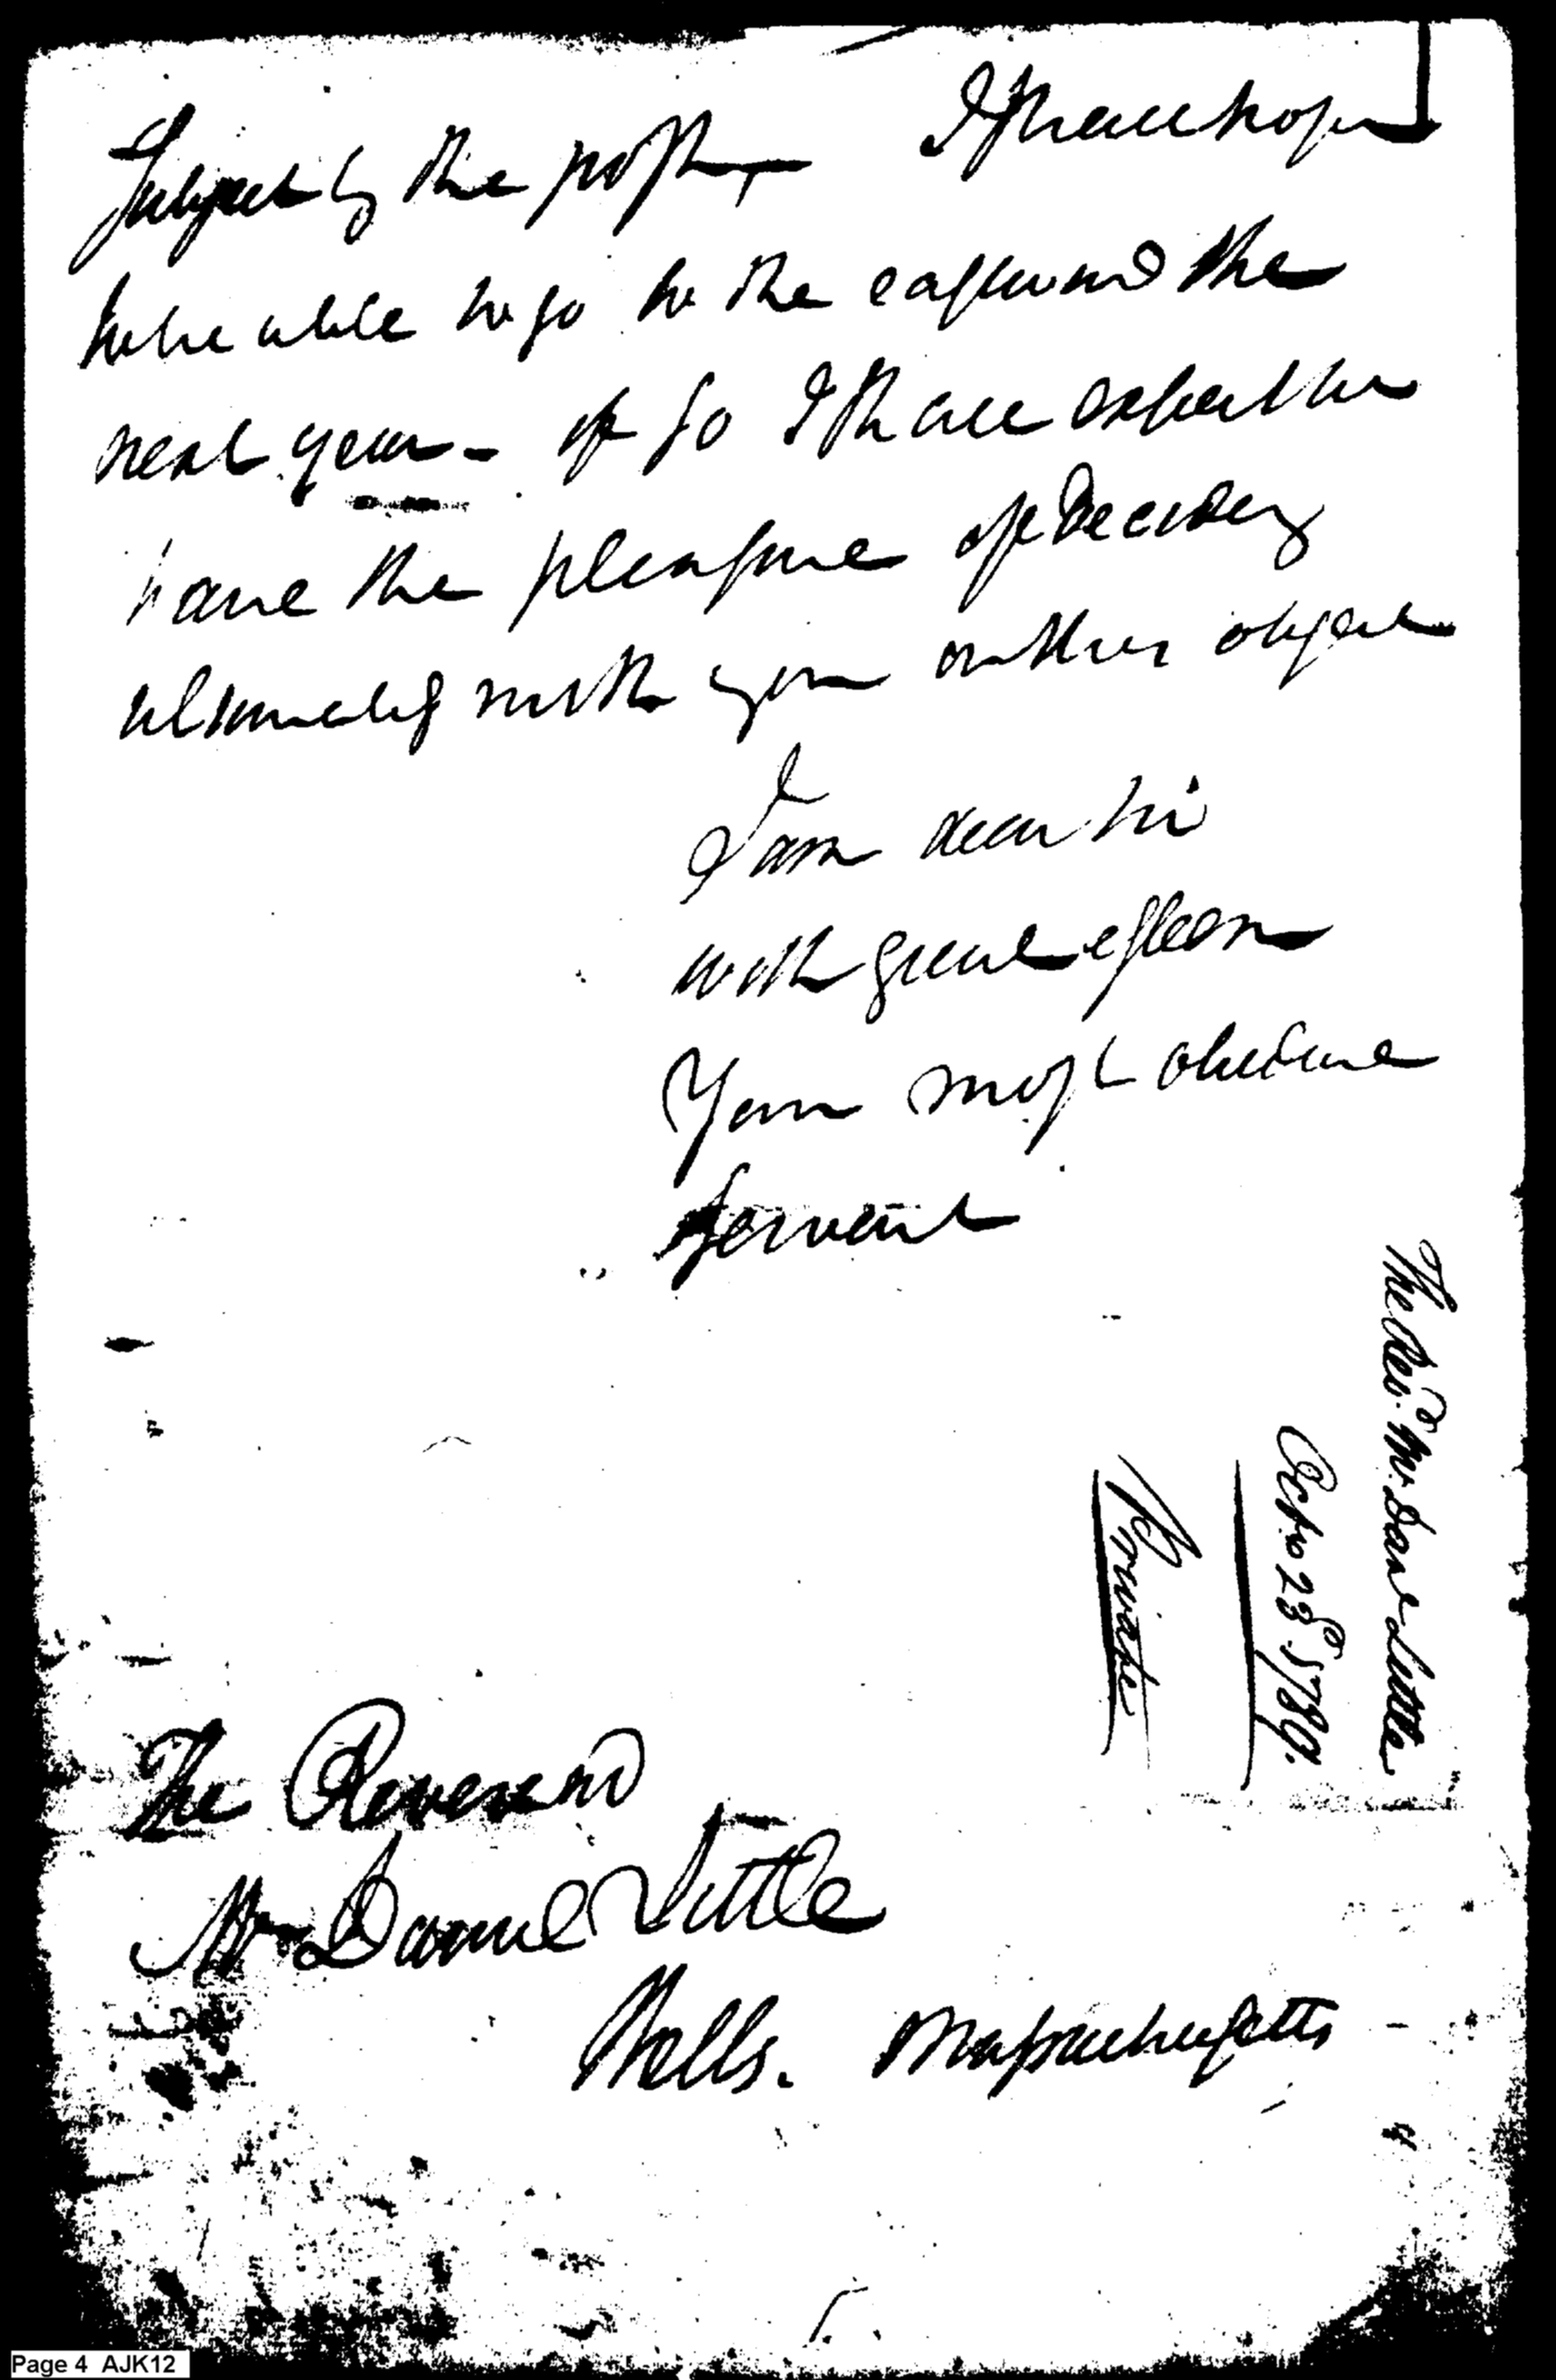 Subject by the post, I shall hope
to be able to go to the eastward the
next year - if so I shall expect to
have the pleasure of deciding
ultimately with you on this object
I am dear sir
with great esteem
Your most obedient
servant
The Revd. Mr. Danl Little
Octr. 28th 1789.
Private
The Reverend
Mr Daniel Little
Wells. Massachusetts
Page 4 AJK12